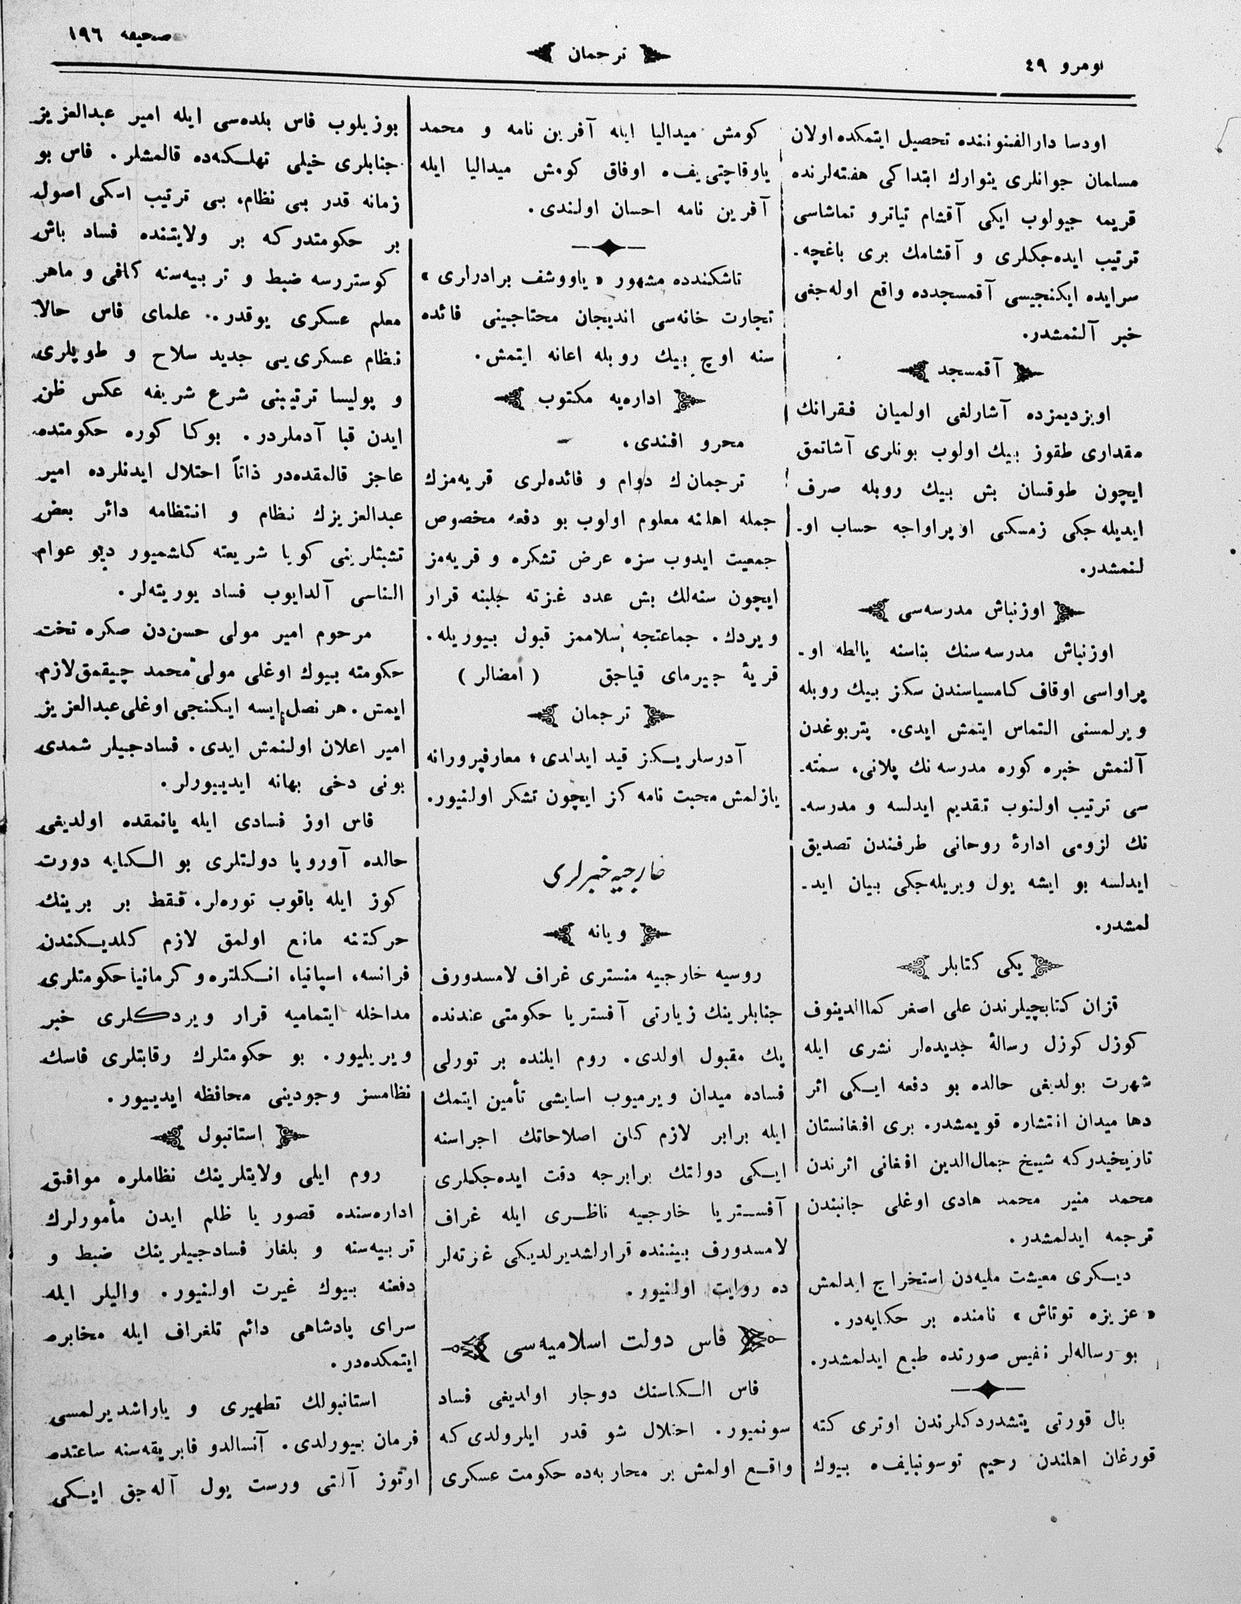 نومرو ٤٩
ترجمان
صحیفه ١٩٦
اودسا دارالفنوننده تحصیل ایتمکده اولان
مسلمان جوانلری ینوارك ابتداکی هفته‌لرنده
قریمه جیولوب ایکی آقشام تیاترو تماشاسی
ترتیب ایده‌جکلری و آقشامك بری باغچه-
سرایده ایکنجیسی آقمسجدده واقع اوله‌جغی
خبر آلنمشدر.
آقمسجد
اویزدیمزده آشارلغی اولمیان فقرانك
مقداری طقوز بیك اولوب بونلری آشاتمق
ایچون طوقسان بش بیك روبله صرف
ایدیله‌جکی زمسکی اوپراواجه حساب او-
لنمشدر.
اوزنباش مدرسه‌سی
اوزنباش مدرسه‌سنك بناسنه یالطه او-
پراواسی اوقاف کامسیاسندن سکز بیك روبله
ویرلمسنی التماس ایتمش ایدی. پتربوغدن
آلنمش خبره کوره مدرسه‌نك پلانی، سمته-
سی ترتیب اولنوب تقدیم ایدلسه و مدرسه-
نك لزومی ادارهٔ روحانی طرفندن تصدیق
ایدلسه بو ایشه یول ویریله‌جکی بیان اید-
لمشدر.
یکی کتابلر
قزان کتابچیلرندن علی اصغر کماالدینوف
کوزل کوزل رسالهٔ جدیده‌لر نشری ایله
شهرت بولدیغی حالده بو دفعه ایکی اثر
دها میدان انتشاره قویمشدر. بری افغانستان
تاریخیدرکه شیخ جمال‌الدین افغانی اثرندن
محمد منیر محمد هادی اوغلی جانبندن
ترجمه ایدلمشدر.
دیکری معیشت ملیه‌دن استخراج ایدلمش
« عزیزه توتاش » نامنده بر حکایه‌در.
بو رساله‌لر نفیس صورتده طبع ایدلمشدر.
بال قورتی یتشدردکلرندن اوتری کته
قورغان اهلندن رحیم توسونبایف‌ه بیوك
کومش میدالیا ایله آفرین نامه و محمد
یاوقاچتی‌یف‌ه اوفاق کومش میدالیا ایله
آفرین نامه احسان اولندی.
تاشکندده مشهور « یاووشف برادرلری »
تجارت خانه‌سی اندیجان محتاجینی فائده
سنه اوچ بیك روبله اعانه ایتمش.
اداره‌یه مکتوب
محرو افندی،
ترجمان‌ك دوام و فائده‌لری قریه‌مزك
جمله اهلنه معلوم اولوب بو دفعه مخصوص
جمعیت ایدوب سزه عرض تشکره و قریه‌مز
ایچون سنه‌لك بش عدد غزته جلبنه قرار
ویردك. جماعتجه سلاممز قبول بیوریله.
قریهٔ جیرمای قیاجق ( امضالر )
ترجمان
آدرسلریکز قید ایدلدی ؛ معارفپرورانه
یازلمش محبت نامه‌کز ایچون تشکر اولنیور.
خارجیه خبرلری
ویانه
روسیه خارجیه منستری غراف لامسدورف
جنابلرینك زیارتی آفستریا حکومتی عندنده
پك مقبول اولدی. روم ایلنده بر تورلی
فساده میدان ویرمیوب اسایشی تأمین ایتمك
ایله برابر لازم کلن اصلاحاتك اجراسنه
ایکی دولتك برابرجه دقت ایده‌جکلری
آفستریا خارجیه ناظری ایله غراف
لامسدورف بیننده قرارلشدیرلدیکی غزته‌لر
ده روایت اولنیور.
فاس دولت اسلامیه‌سی
فاس الکاسنك دوجار اولدیغی فساد
سونمیور. احتلال شو قدر ایلرولدی‌که
واقع اولمش بر محاربه‌ده حکومت عسکری
بوزیلوب فاس بلده‌سی ایله امیر عبدالعزیز
جنابلری خیلی تهلکه‌ده قالمشلر. فاس بو
زمانه قدر بی نظام، بی ترتیب اسکی اصول
بر حکومتدرکه بر ولایتنده فساد باش
کوستررسه ضبط و تربیه‌سنه کافی و ماهر
معلم عسکری یوقدر.. علمای فاس حالا
نظام عسکری‌یی جدید سلاح و طوپلری
و پولیسا ترتیبنی شرع شریفه عکس ظن
ایدن قبا آدملردر. بوکا کوره حکومتده
عاجز قالمقده‌در ذاتاً احتلال ایدنلرده امیر
عبدالعزیزك نظام و انتظامه دائر بعض
تشبثلرینی کویا شریعته کلشمیور دیو عوام
الناسی آلدایوب فساد یوریته‌لر.
مرحوم امیر مولی حسن‌دن صکره تخت
حکومته بیوك اوغلی مولی محمد چیقمق لازم
ایمش. هر نصل ایسه ایکنجی اوغلی عبدالعزیز
امیر اعلان اولنمش ایدی. فسادجیلر شمدی
بونی دخی بهانه ایدییورلر.
فاس اوز فسادی ایله یانمقده اولدیغی
حالده آوروپا دولتلری بو الکایه دورت
کوز ایله باقوب توره‌لر. فقط بر برینك
حرکتنه مانع اولمق لازم کلدیکندن
فرانسه، اسپانیا، انکلتره و کرمانیا حکومتلری
مداخله ایتمامیه قرار ویردکلری خبر
ویریلیور. بو حکومتلرك رقابتلری فاسك
نظامسز وجودینی محافظه ایدییور.
إستانبول
روم ایلی ولایتلرینك نظاملره موافق
اداره‌سنده قصور یا ظلم ایدن مأمورلرك
تربیه‌سنه و بلغار فسادجیلرینك ضبط و
دفعنه بیوك غیرت اولنیور. والیلر ایله
سرای پادشاهی دائم تلغراف ایله مخابره
ایتمکده‌در.
استانبولك تطهیری و یاراشدیرلمسی
فرمان بیورلدی. آنسالدو فابریقه‌سنه ساعتده
اوتوز آلتی ورست یول آله‌جق ایکی